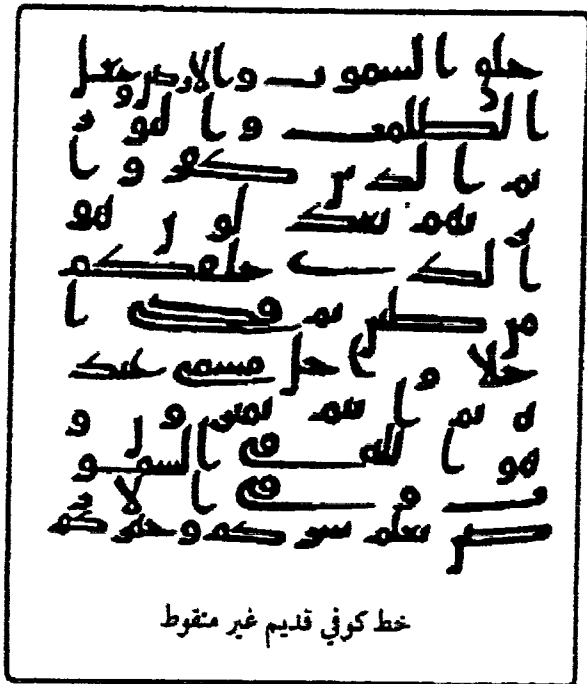 خلق السموت والارض وجعل
الظلمت والنور
ثم الذين كفروا
بربهم يعدلون هو
الذي خلقكم
من طين ثم قضى ا
جلا واجل مسمى عند
ه ثم انتم تمترون و
هو الله في السمو
ت وفي الار
ض يعلم سركم وجهركم
خط كوفي قديم غير منقوط